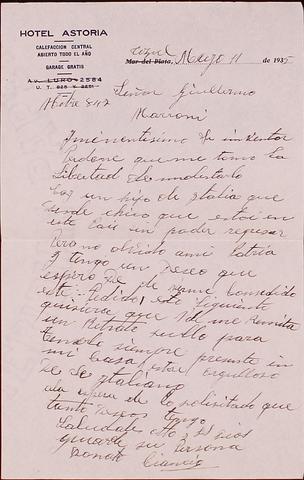 HOTEL ASTORIA
CALEFACCION CENTRAL
ABIERTO TODO EL AÑO
GARAGE GRATIS
Av. LURO 2584
U. T.
Mitre 842
Mar del Plata, Mayo 11 de 193
Señor Guillermo
Marconi
inventor
Perdone que me tomo la
Libertad de molestarlo
un hijo de Italia que
desde chico que estoi en
este Pais un poder regresar
Pero no olvido ami Patria
y tengo un Deseo que
espero De me
este Pedido, este siguiente
quisiera que Ud me Remita
un Retrato sullo para
tenerlo siempre presente in
mi casa, estar orgulloso
De se Italiano
ala espera de lo solisitado que
tanto Deseos tengo
Saludale Dios
guarde su Persona
Donato